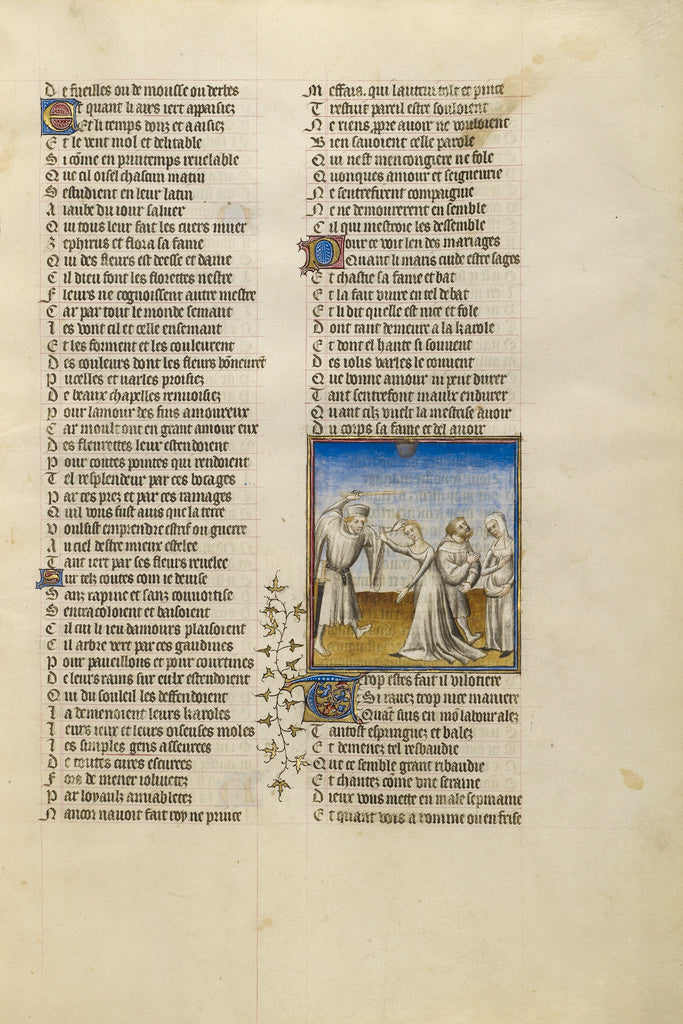 D e fueilles ou de mousse ou derbes
E t quant li aires iert appaisiez
Et li temps donz et aaisiez
E t le vent mol et delitable
S i cõme en printemps renelable
Q ue cil oisel chascun matin
S estudient en leur latin
A laube du iour saluer
Q ui tous leur fait les cuers muer
Z ephirus et flora sa fame
Q ui des fleurs est deesse et dame
C il dieu font les florettes nestre
F leurs ne cognoissent autre mestre
C ar par tout le monde semant
L es vont cil et celle ensemant
E t les forment et les couleurent
D es couleurs dont les fleurs hõneurent
P ucelles et varles proisiez
D e beaux chapelles renuoisiez
P our lamour des fins amoureux
C ar moult ont en grant amour eux
D es fleurettes leur estendoient
P our coutes pointes qui rendoient
T el resplendeur par ces bocages
P ar ces prez et par ces ramages
Q uil vous fust auis que la terre
V oulsist emprendre estrif ou guerre
A u ciel destre mieux estelee
T ant iert par ses fleurs reuelee
S ur telz coutes com ie deuise
S anz rapine et sanz conuoitise
S entracoloient et baisoient
C il cui li ieu damours plaisoient
C il arbre vert par ces gaudines
P our paueillons et pour courtines
D e leurs rains sur eulx estendoient
Q ui du souleil les deffendoient
L a demenoient leurs karoles
L eurs ieux et leurs oiseuses moles
L es simples gens asseurees
D e toutes cures escurees
F ors de mener ioliuetez
P ar loyaulx amiabletez
N ancor nauoit fait roy ne prince
M effais, qui lautrui tolt et pince
T restuit pareil estre souloient
N e riens ppre auoir ne vouloient
B ien sauoient celle parole
Q ui nest mencongiere ne fole
Q uonques amour et seigneurie
N e sentrefirent compaignie
N e ne demourerent en semble
C il qui mestroie les dessemble
P our ce voit len des mariages
Quant li maris cuide estre sages
E t chastie sa fame et bat
E t la fait viure en tel debat
E t li dit quelle est nice et fole
D ont tant demeure a la karole
E t dont el hante si souuent
D es iolis varles le conuent
Q ue bonne amour ni peut durer
T ant sentrefont maulx endurer
Q uant cilz vuelt la mestrise auoir
D u corps sa fame et del auoir
Trop estes fait il vilotiere
Si rauez trop nice maniere
Quãt suis en mõ labour alez
T antost espringuez et balez
E t demenez tel resbaudie
Q ue ce semble grant ribaudie
E t chantez cõme vne seraine
D ieux vous mette en male sepmaine
E t quant vois a romme ou en frise